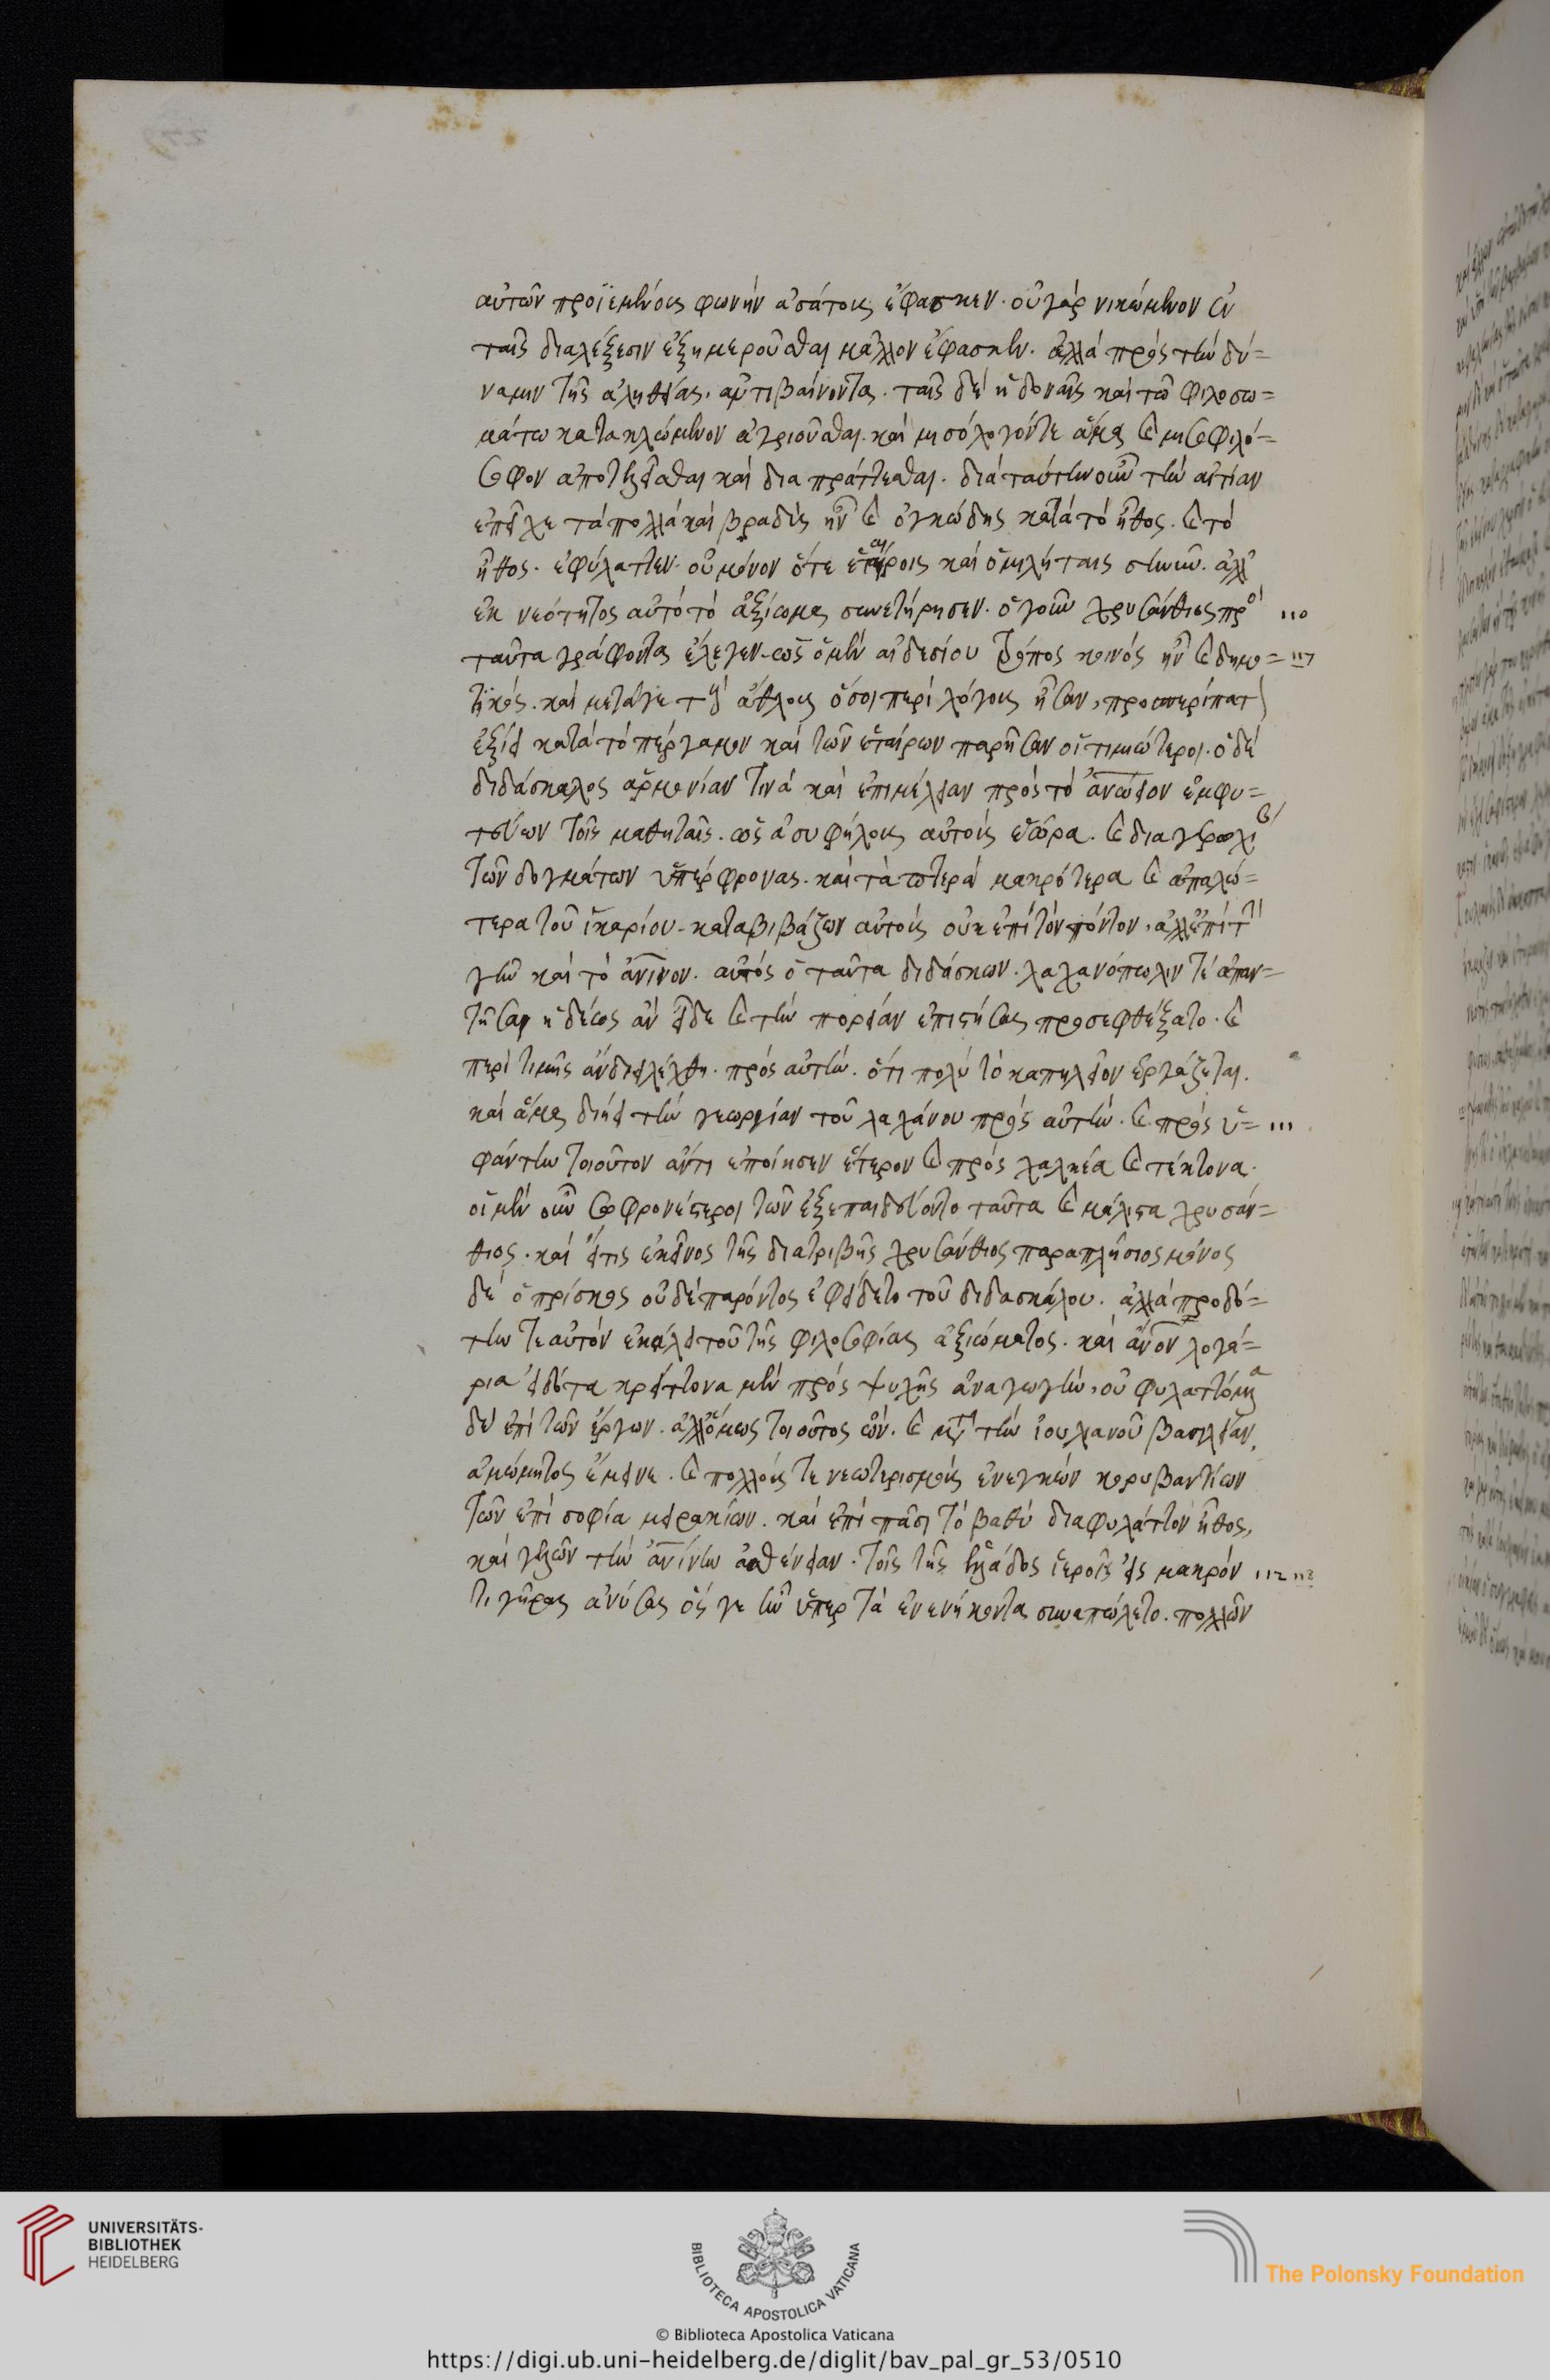 αὐτῶν προϊεμένοις φωνὴν ἀσάτοις ἔφασκεν. οὐ γὰρ νικώμενον ἐν
ταῖς διαλέξεσιν ἐξημεροῦσθαι μᾶλλον ἔφασκεν. ἀλλὰ πρὸς τὴν δύ=
ναμιν τῆς ἀληθείας. ἀντιβαίνοντας. ταῖς δὲ ἡδοναῖς καὶ τῷ φιλοσω=
μάτω κατακλώμενον ἀγριοῦσθαι. καὶ μισόλογόν τε ἅμα καὶ μισοφιλό=
σοφον ἀποτελεῖσθαι καὶ διαπράττεσθαι. διὰ ταύτην οὖν τὴν αἰτίαν
ἐπεῖχε τὰ πολλὰ καὶ βραδὺς ἦν καὶ ὀγκώδης κατὰ τὸ ἦθος. καὶ τὸ
ἦθος. ἐφύλαττεν. οὐ μόνον ὅτε ἑταίροις καὶ ὁμιληταῖς συνῆν. ἀλλ'
ἐκ νεότητος αὐτὸ τὸ ἀξίωμα συνετήρησεν. ὁ γοῦν χρυσάνθιος πρὸ
ταῦτα γράφοντα ἔλεγεν. ὡς ὁ μὲν αἰδεσίου τρόπος κοινὸς ἦν καὶ δημο=
τικός. καὶ μετά γε τοὺς ἄθλους ὅσοι περὶ λόγους ἦσαν, προσπερίπατ
ἐξίει κατὰ τὸ πέργαμον καὶ τῶν ἑταίρων παρῆσαν οἱ τιμιώτεροι. ὁ δὲ
διδάσκαλος ἁρμονίαν τινὰ καὶ ἐπιμέλειαν πρὸς τὸ ἀνώειον ἐμφυ=
τεύων τοῖς μαθηταῖς. ὡς ἀσυφήλους αὐτοὺς ἑώρα. καὶ διαγερωχι
τῶν δογμάτων ὑπέρφρονας. καὶ τὰ πτερὰ μακρότερα καὶ ἁπαλώ=
τερα τοῦ ἰκαρίου. καταβιβάζων αὐτοὺς οὐκ ἐπὶ τὸν πόντον, ἀλλ' ἐπὶ τὴν
γῆν καὶ τὸ ἀνινον. αὐτὸς ὁ ταῦτα διδάσκων. λαχανόπωλίν τε ἀπαν=
τῆσαι ἡδέως ἂν εἶδε καὶ τὴν πορείαν ἐπιστήσας προσεφθέγξατο. καὶ
περὶ τιμῆς ἂν διειλέχθη. πρὸς αὐτὴν. ὅτι πολὺ τὸ καπηλεῖον ἐργάζεται.
καὶ ἅμα διήει τὴν γεωργίαν τοῦ λαχάνου πρὸς αὐτὴν. καὶ πρὸς ὑ=
φάντην τοιοῦτον ἄντι ἐποίησεν ἕτερον καὶ πρὸς χαλκέα καὶ τέκτονα.
οἱ μὲν οὖν σωφρονέστεροι τῶν ἐξεπαιδεύοντο ταῦτα καὶ μάλιστα χρυσάν=
θιος. καὶ εἴτις ἐκεῖνος τῆς διατριβῆς χρυσάνθιος παραπλήσιος μόνος
δὲ ὁ πρίσκος οὐδὲ παρόντος ἐφείδετο τοῦ διδασκάλου. ἀλλὰ προδό=
την τε αὐτὸν ἐκάλει τοῦ τῆς φιλοσοφίας ἀξιώματος. καὶ ἀνον λογά=
ρια εἰδότα κρείττονα μὲν πρὸς ψυχῆς ἀναγωγὴν, οὐ φυλαττόμενα
δὲ ἐπὶ τῶν ἔργων. ἀλλ' ὅμως τοιοῦτος ὤν. καὶ μετὰ τὴν ἰουλιανοῦ βασιλείαν.
ἀμώμητος ἔμεινε. καὶ πολλούς τε νεωτερισμοὺς ἐνεγκὼν κορυβαντίων
τῶν ἐπὶ σοφία μειρακίων. καὶ ἐπὶ πᾶσι τὸ βαθὺ διαφυλάττων ἦθος,
καὶ γελῶν τὴν ἀνίνην ἀσθένειαν. τοῖς τῆς ἑλλάδος ἱεροῖς εἰς μακρόν
τι γῆρας ἀνύσας ὅς γε ἦν ὑπὲρ τὰ ἐνενήκοντα συναπώλετο. πολλῶν
UNIVERSITÄTS-
BIBLIOTHEK
HEIDELBERG
BIBLIOTECA APOSTOLICA VATICANA
The Polonsky Foundation
© Biblioteca Apostolica Vaticana
https://digi.ub.uni-heidelberg.de/diglit/bav_pal_gr_53/0510